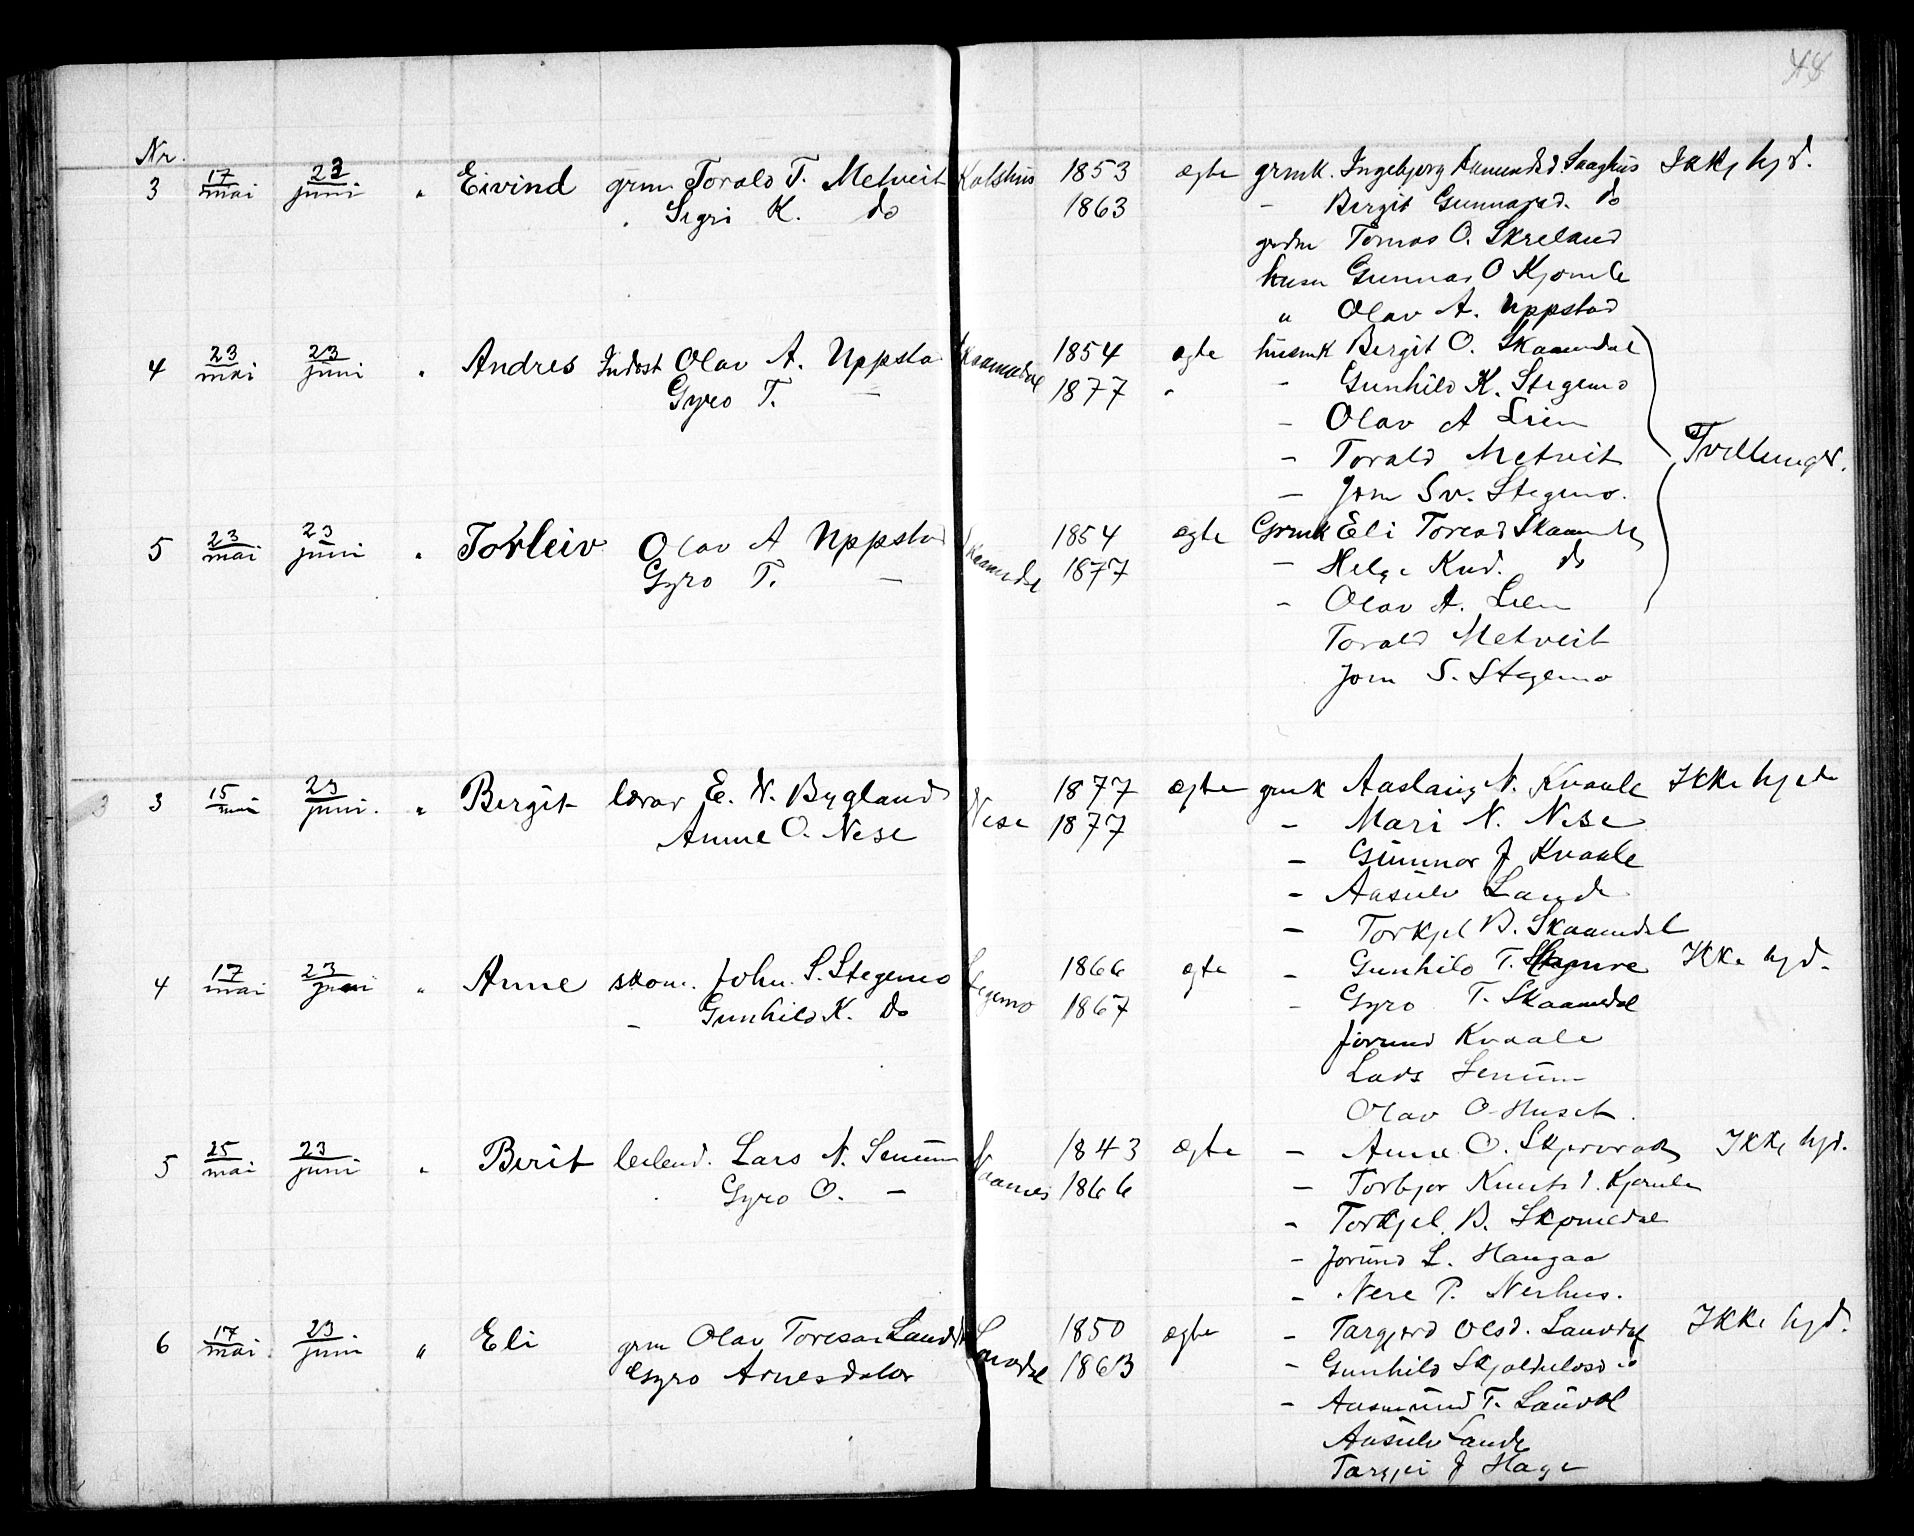 48
Nr.
3 17/mai 23/juni " Eivind grm. Torald T. Metveit Katshus 1853 ægte grmk. Ingebjorg Aamundsd. Saaghus Ikkj hjd.
Sigri K. do 1863 - Bergit Gunnarsd. do
grdm Tomas O. Skreland
husm Gunnar O Kjomle
" Olav A. Uppstad
4 23/mai 23/juni " Andres Inderst Olav A. Uppsta Skaamedal 1854 ægte husmk Bergit O. Skaamdal
Gyro T. — 1877 " - Gunhild K. Stegemo
- Olav A Lien
- Torald Metveit Tvillinger.
- Jom Sv. Stegemo.
5 23/mai 23/juni " Torleiv Olav A Uppstad Skaamedal 1854 ægte Grmk Eli Toresd Skaamdal
Gyro T. — 1877 - Helge Knd. do
- Olav A. Lien
Torald Metveit
Jom S. Stegemo
3 3 15/mai 23/juni. " Bergit lærar E. N. Bygland Nese 1877 ægte grmk Aaslaug N. Kvaale Ikke hjd
Anne O. Nese 1877 - Mari N. Nese
- Gunnar J Kvaale
- Aasulv Lande
- Torkjel B. Skaamedal
4 17/mai 23/juni " Anne skom. John. S. Stegemo Stegemo 1866 ægte - Gunhild T. Ikke hjd.
- Gunhild K. Do 1867 - Gyro T. Skaamedal
Jorund Kvaale
Lars Senum
Olav O Huset.
5 25/mai 23/juni " Berit leilend. Lars N. Senum Naamnes 1843 ægte - Anne O. Skjervrak Ikkj hjd.
Gyro O. — 1866 - Torbjor Knutsd. Kjomle
- Torkjel B. Skomedal
- Jorund L. Haugaa
- Nere P. Nerhus.
6 17/mai. 23/juni " Eli grm Olav Toresen Lauvdal Lauvdal 1850 ægte - Targjerd Olsd. Lauvdal Ikke hjd.
Gyro Arnesdotor 1863 - Gunhild Skjoldulvsd do
- Aasmund T. Lauvdl
Aasulv Lande
Targjei J Hage